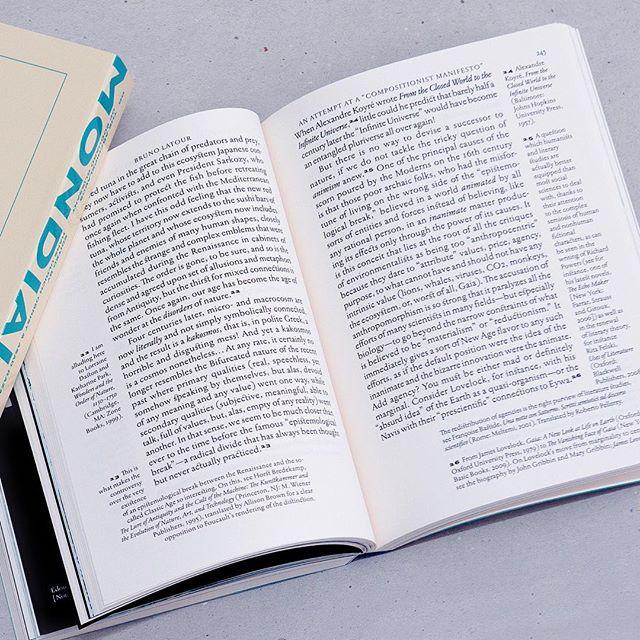 MONDIAL
BRUNO LATOUR
ed tuna in the great chain of predators and prey,
they now have to add to this ecosystem Japanese con-
sumers, activists, and even President Sarkozy, who
had promised to protect the fish before retreating
once again when confronted with the Mediterranean
fishing fleet. I have this odd feeling that the new red
tuna, whose territory now extends to the sushi bars of
the whole planet and whose ecosystem now includes
friends and enemies of many human shapes, closely
resembles the strange and complex emblems that were
accumulated during the Renaissance in cabinets of
curiosities. The order is gone, to be sure, and so is the
dense and agreed upon set of allusions and metaphors
from Antiquity, but the thirst for mixed connections is
the same. Once again, our age has become the age of
wonder at the disorders of nature.
Four centuries later, micro- and macrocosm are
now literally and not simply symbolically connected,
and the result is a kakosmos, that is, in polite Greek, a
horrible and disgusting mess! And yet a kakosmos
is a cosmos nonetheless... At any rate, it certainly no
longer resembles the Bifurcated nature of the recent
past where primary qualities (real, speechless, yet
somehow speaking by themselves, but alas, devoid
of any meaning and any value) went one way, while
secondary qualities (subjective, meaningful, able to
talk, full of values, but, alas, empty of any reality) went
another. In that sense, we seem to be much closer than
ever to the time before the famous "epistemological
break"—a radical divide that has always been thought
but never actually practiced.
22 I am
alluding here
to Lorraine
Daston and
Katharine Park,
Wonders and the
Order of Nature,
1150–1750
(Cambridge,
MA: Zone
Books, 1999).
23 This is
what makes the
controversy
over the very
existence
of an epistemological break between the Renaissance and the so-
called Classic Age so interesting: On this, see Horst Bredekamp,
The Lure of Antiquity and the Cult of the Machine: The Kunstkammer and
the Evolution of Nature, Art, and Technology (Princeton, NJ: M. Wiener
Publishers, 1995), translated by Allison Brown for a clear
opposition to Foucault's rendering of the distinction.
AN ATTEMPT AT A "COMPOSITIONIST MANIFESTO"
245
When Alexandre Koyré wrote From the Closed World to the
Infinite Universe,24 little could he predict that barely half a
century later the "Infinite Universe" would have become
an entangled pluriverse all over again!
But there is no way to devise a successor to
nature, if we do not tackle the tricky question of
animism anew.25 One of the principal causes of the
scorn poured by the Moderns on the 16th century
is that those poor archaic folks, who had the misfor-
tune of living on the wrong side of the "epistemo-
logical break," believed in a world animated by all
sorts of entities and forces instead of believing, like
any rational person, in an inanimate matter produc-
ing its effects only through the power of its causes. It
is this conceit that lies at the root of all the critiques
of environmentalists as being too "anthropocentric"
because they dare to "attribute" values, price, agency,
purpose, to what cannot have and should not have any
intrinsic value (lions, whales, viruses, CO2, monkeys,
the ecosystem, or, worst of all, Gaia). The accusation of
anthropomorphism is so strong that it paralyzes all the
efforts of many scientists in many fields—but especially
biology—to go beyond the narrow constraints of what
is believed to be "materialism" or "reductionism". It
immediately gives a sort of New Age flavor to any such
efforts, as if the default position were the idea of the
inanimate and the bizarre innovation were the animate.
Add agency? You must be either mad or definitely
marginal. Consider Lovelock, for instance, with his
"absurd idea" of the Earth as a quasi-organism—or the
Navis with their "prescientific" connections to Eywa.26
24 Alexandre
Koyré, From the
Closed World to the
Infinite Universe
(Baltimore:
Johns Hopkins
University Press,
1957).
25 A question
which humanists
and literary
studies are
actually better
equipped than
most social
sciences to deal
with, thanks to
their attention
to the complex
semiosis of human
and nonhuman
fictional
characters, as can
be seen in the
writings of Richard
Powers (see for
instance, one of
his latest novels,
The Echo Maker
[New York:
Farrar, Straus
and Giroux,
2006]) as well as
in the research
of literary theory,
for instance